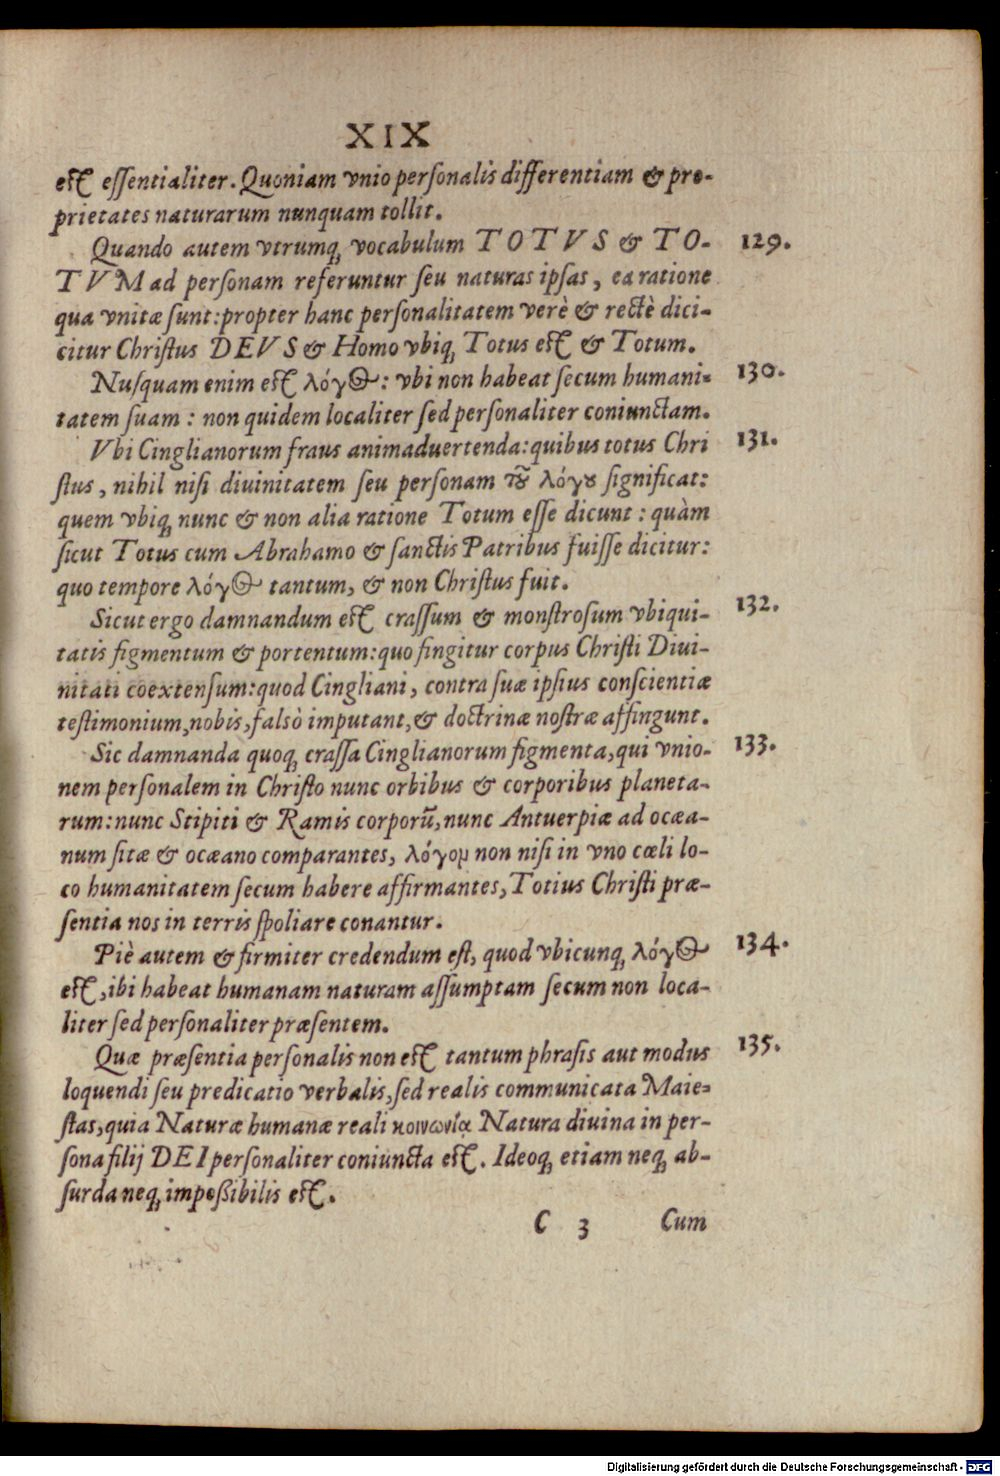 XIX
est essentialiter. Quoniam vnio personalis differentiam & pro-
prietates naturarum nunquam tollit.
Quando autem vtrumq; vocabulum TOTVS & TO- 129.
TVM ad personam referuntur seu naturas ipsas, ea ratione
qua vnitæ sunt: propter hanc personalitatem verè & rectè dici-
citur Christus DEVS & Homo vbiq; Totus est & Totum.
Nusquam enim est λόγος: vbi non habeat secum humani- 130.
tatem suam: non quidem localiter sed personaliter coniunctam.
Vbi Cinglianorum fraus animaduertenda: quibus totus Chri 131.
stus, nihil nisi diuinitatem seu personam τ͂ȣ λόγȣ significat:
quem vbiq; nunc & non alia ratione Totum esse dicunt: quàm
sicut Totus cum Abrahamo & sanctis Patribus fuisse dicitur:
quo tempore λόγος tantum, & non Christus fuit.
Sicut ergo damnandum est crassum & monstrosum vbiqui- 132.
tatis figmentum & portentum: quo fingitur corpus Christi Diui-
nitati coextensum: quod Cingliani, contra suæ ipsius conscientiæ
testimonium, nobis, falsò imputant, & doctrinæ nostræ affingunt.
Sic damnanda quoq; crassa Cinglianorum figmenta, qui vnio- 133.
nem personalem in Christo nunc orbibus & corporibus planeta-
rum: nunc Stipiti & Ramis corporũ, nunc Antuerpiæ ad ocæa-
num sitæ & ocæano comparantes, λόγομ non nisi in vno cœli lo-
co humanitatem secum habere affirmantes, Totius Christi præ-
sentia nos in terris spoliare conantur.
Piè autem & firmiter credendum est, quod vbicunq; λόγος 134.
est, ibi habeat humanam naturam assumptam secum non loca-
liter sed personaliter præsentem.
Quæ præsentia personalis non est tantum phrasis aut modus 135.
loquendi seu predicatio verbalis, sed realis communicata Maie-
stas, quia Naturæ humanæ reali κοινωνίᾳ Natura diuina in per-
sona filij DEI personaliter coniuncta est. Ideoq; etiam neq; ab-
surda neq; impoßibilis est.
C 3 Cum
Digitalisierung gefördert durch die Deutsche Forschungsgemeinschaft - DFG